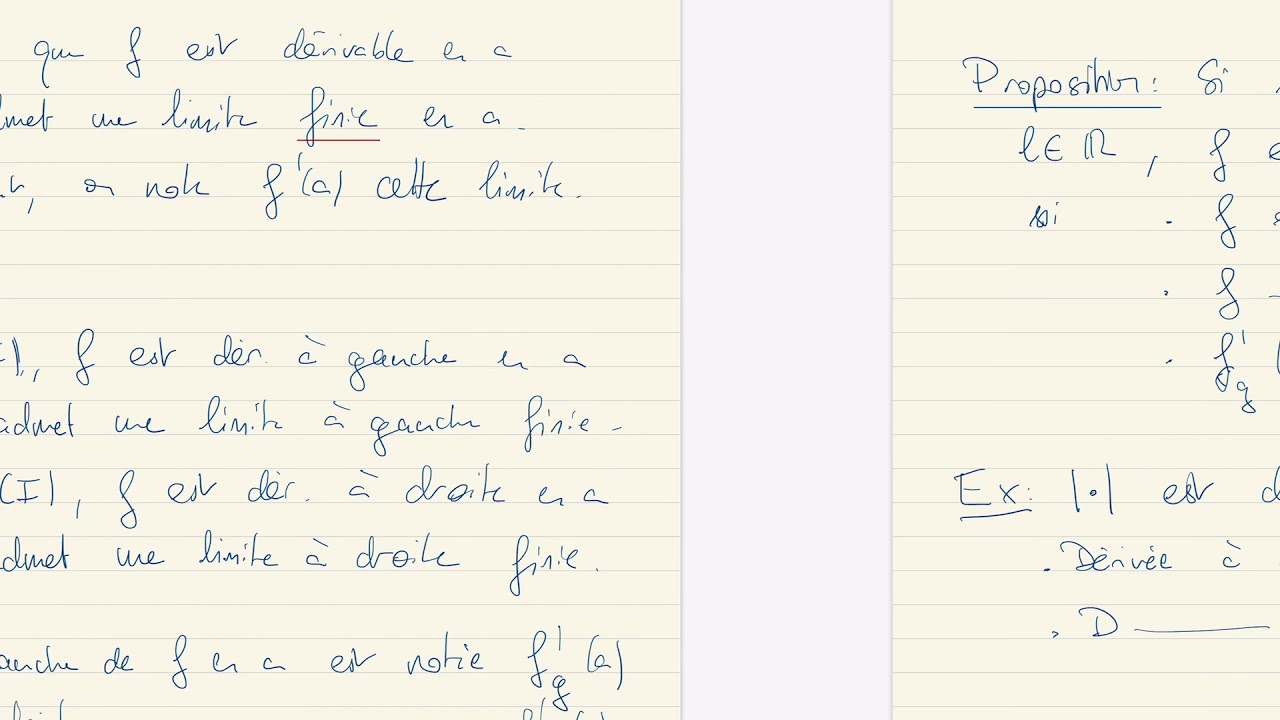 que f est dérivable en a
dmet une limite finie en a.
on note f'(a) cette limite.
f est dér. à gauche en a
admet une limite à gauche finie.
(I), f est dér. à droite en a
dmet une limite à droite finie.
auche de f en a est notée f'g(a)
Proposition: Si
l∈ℝ, f
si . f
. f
. f'g
Ex: |•| est d
. Dérivée à
. D